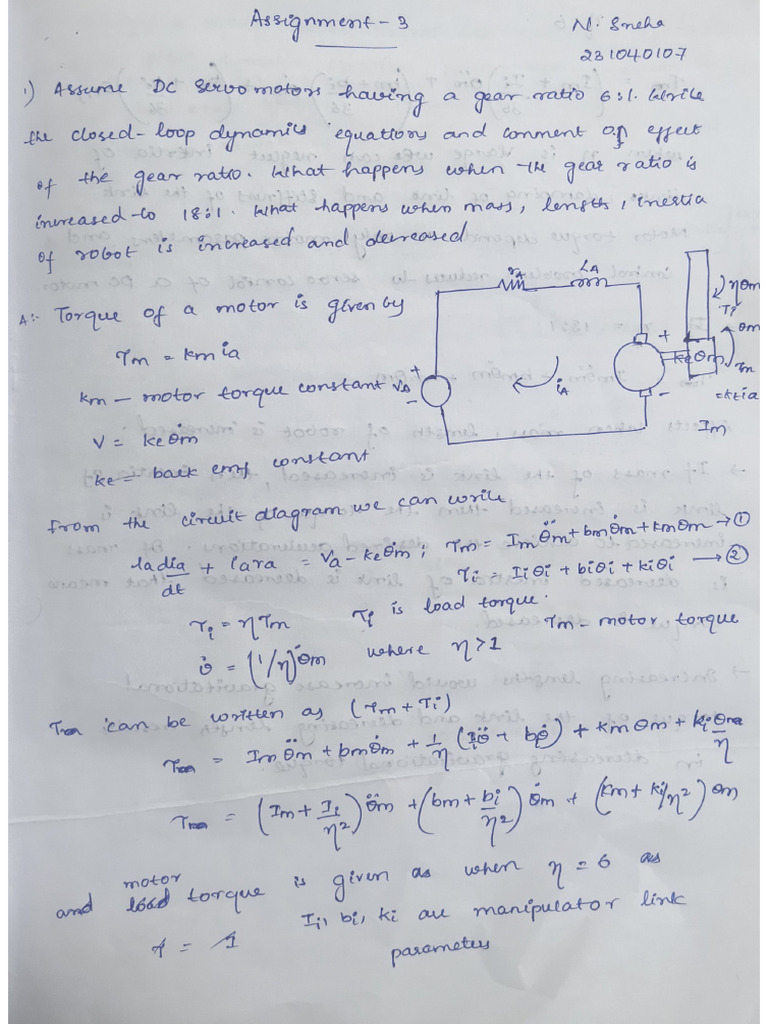 Assignment - 3
N. Sneha
231040107
1) Assume DC servo motors having a gear ratio 6:1. Write
the closed-loop dynamics equations and comment on effect
of the gear ratio. What happens when the gear ratio is
increased to 18:1. What happens when mass, length, inertia
of robot is increased and decreased
A:- Torque of a motor is given by
τm = km ia
km - motor torque constant
v = ke θ̇m
ke = back emf constant
VA + -
rA LA
iA
+ keθ̇m -
ηθm
τi
θm
τm
= ktia
Im
From the circuit diagram we can write
la dia/dt + iara = Va - keθ̇m ; τm = Im θ̈m + bmθ̇m + kmθm → ①
τi = Iiθi + biθi + kiθi → ②
τi = ητm τi is load torque.
τm - motor torque
θ̇ = (1/η)θ̇m where η>1
τm can be written as (τm + τi)
τm = Im θ̈m + bm θ̇m + 1/η (Iiθ̈ + biθ̇) + kmθm + kiθm/η
τm = (Im + Ii/η²) θ̈m + (bm + bi/η²) θ̇m + (km + ki/η²) θm
and motor torque is given as when η = 6 as
Ii, bi, ki are manipulator link
parameters